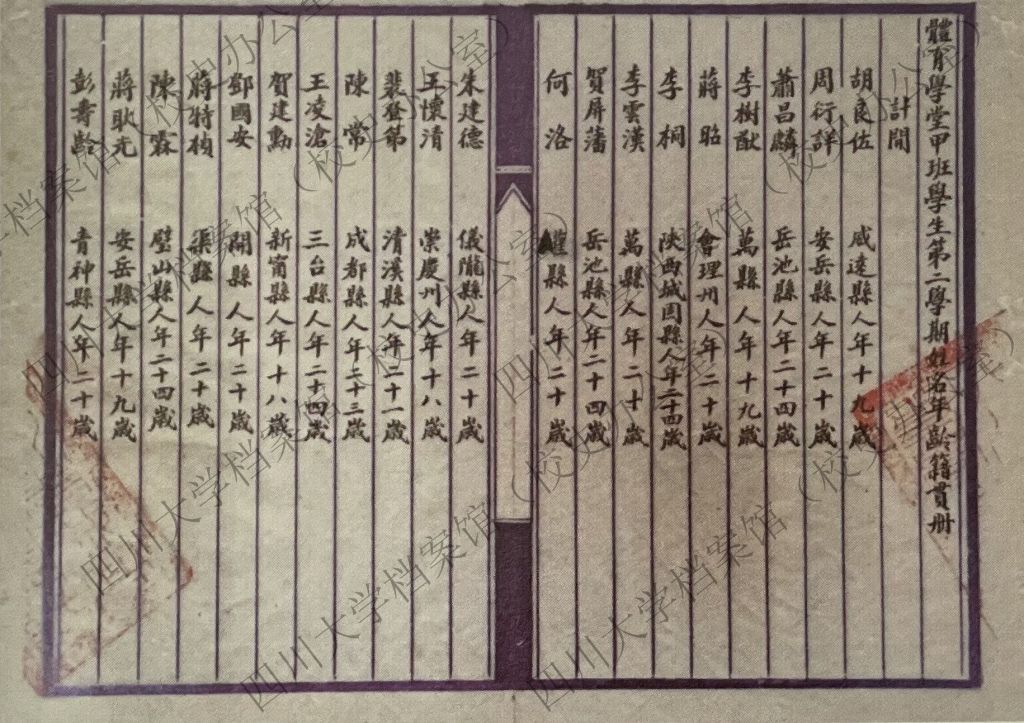 體育學堂甲班學生第二學期姓名年齡籍貫册
計開
胡良佐 威遠縣人年十九歲
周行詳 安岳縣人年二十歲
蕭昌麟 岳池縣人年二十四歲
李樹猷 萬縣人年十九歲
蔣昭 會理州人年二十歲
李桐 陝西城固縣人年二十四歲
李雲漢 萬縣人年二十歲
賀屏藩 岳池縣人年二十四歲
何洛 灌縣人年二十歲
朱建德 儀隴縣人年二十歲
王懷清 崇慶州人年十八歲
裴登第 清溪縣人年二十一歲
陳常 成都縣人年二十三歲
王凌滄 三台縣人年二十四歲
賀建勳 新甯縣人年十八歲
鄧國安 開縣人年二十歲
蔣特楨 渠縣人年二十歲
陳霖 壁山縣人年二十四歲
蔣耿光 安岳縣人年十九歲
彭壽齡 青神縣人年二十歲
四川大学档案馆（校史办公室）